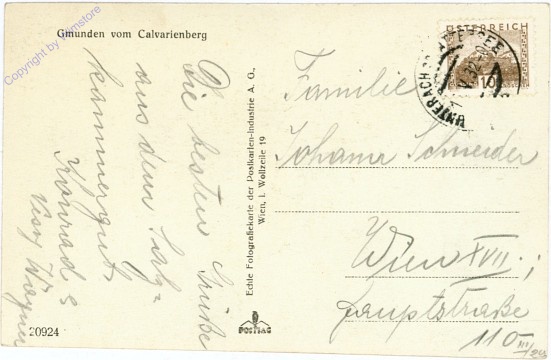 Gmunden vom Calvarienberg
Die besten Grüße
aus dem Salz-
kammergut
Konrad &
Wagner
Echte Fotografiekarte der Postkarten-Industrie A. G.,
Wien, I. Wollzeile 19
20924
POSTIAG
ÖSTERREICH
10
UNTERACH ATTERSEE
Familie
Johann Schneider
Wien XVII.;
Hauptstraße
110
Copyright by